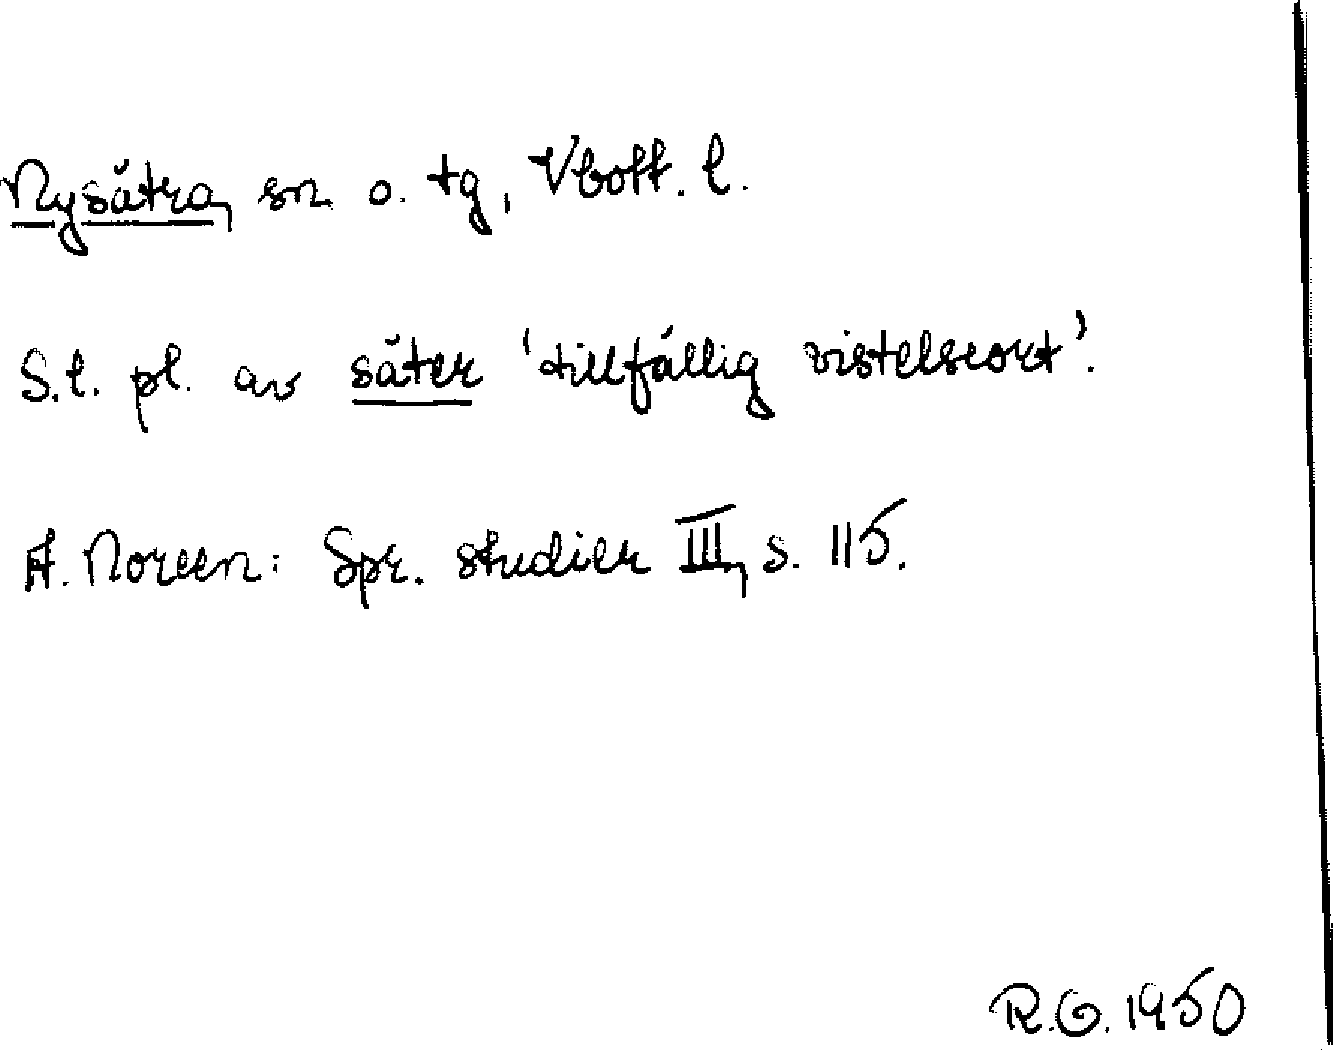 Nysätra, sn o. tg, Vbott. l.
S.l. pl. av säter 'tillfällig vistelseort'.
A. Noreen: Spr. studier III, s. 115.
R.G. 1950